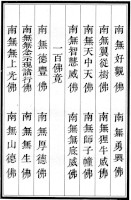 南無好觀佛　南無勇興佛
南無翼從樹佛　南無狸牛威佛
南無天中天佛　南無師子幢佛
南無智慧威佛　南無無底威佛
一百佛竟
南無德豊佛　南無厚德佛
南無無念示現諸行佛　南無無生佛
南無無上光佛　南無山德佛